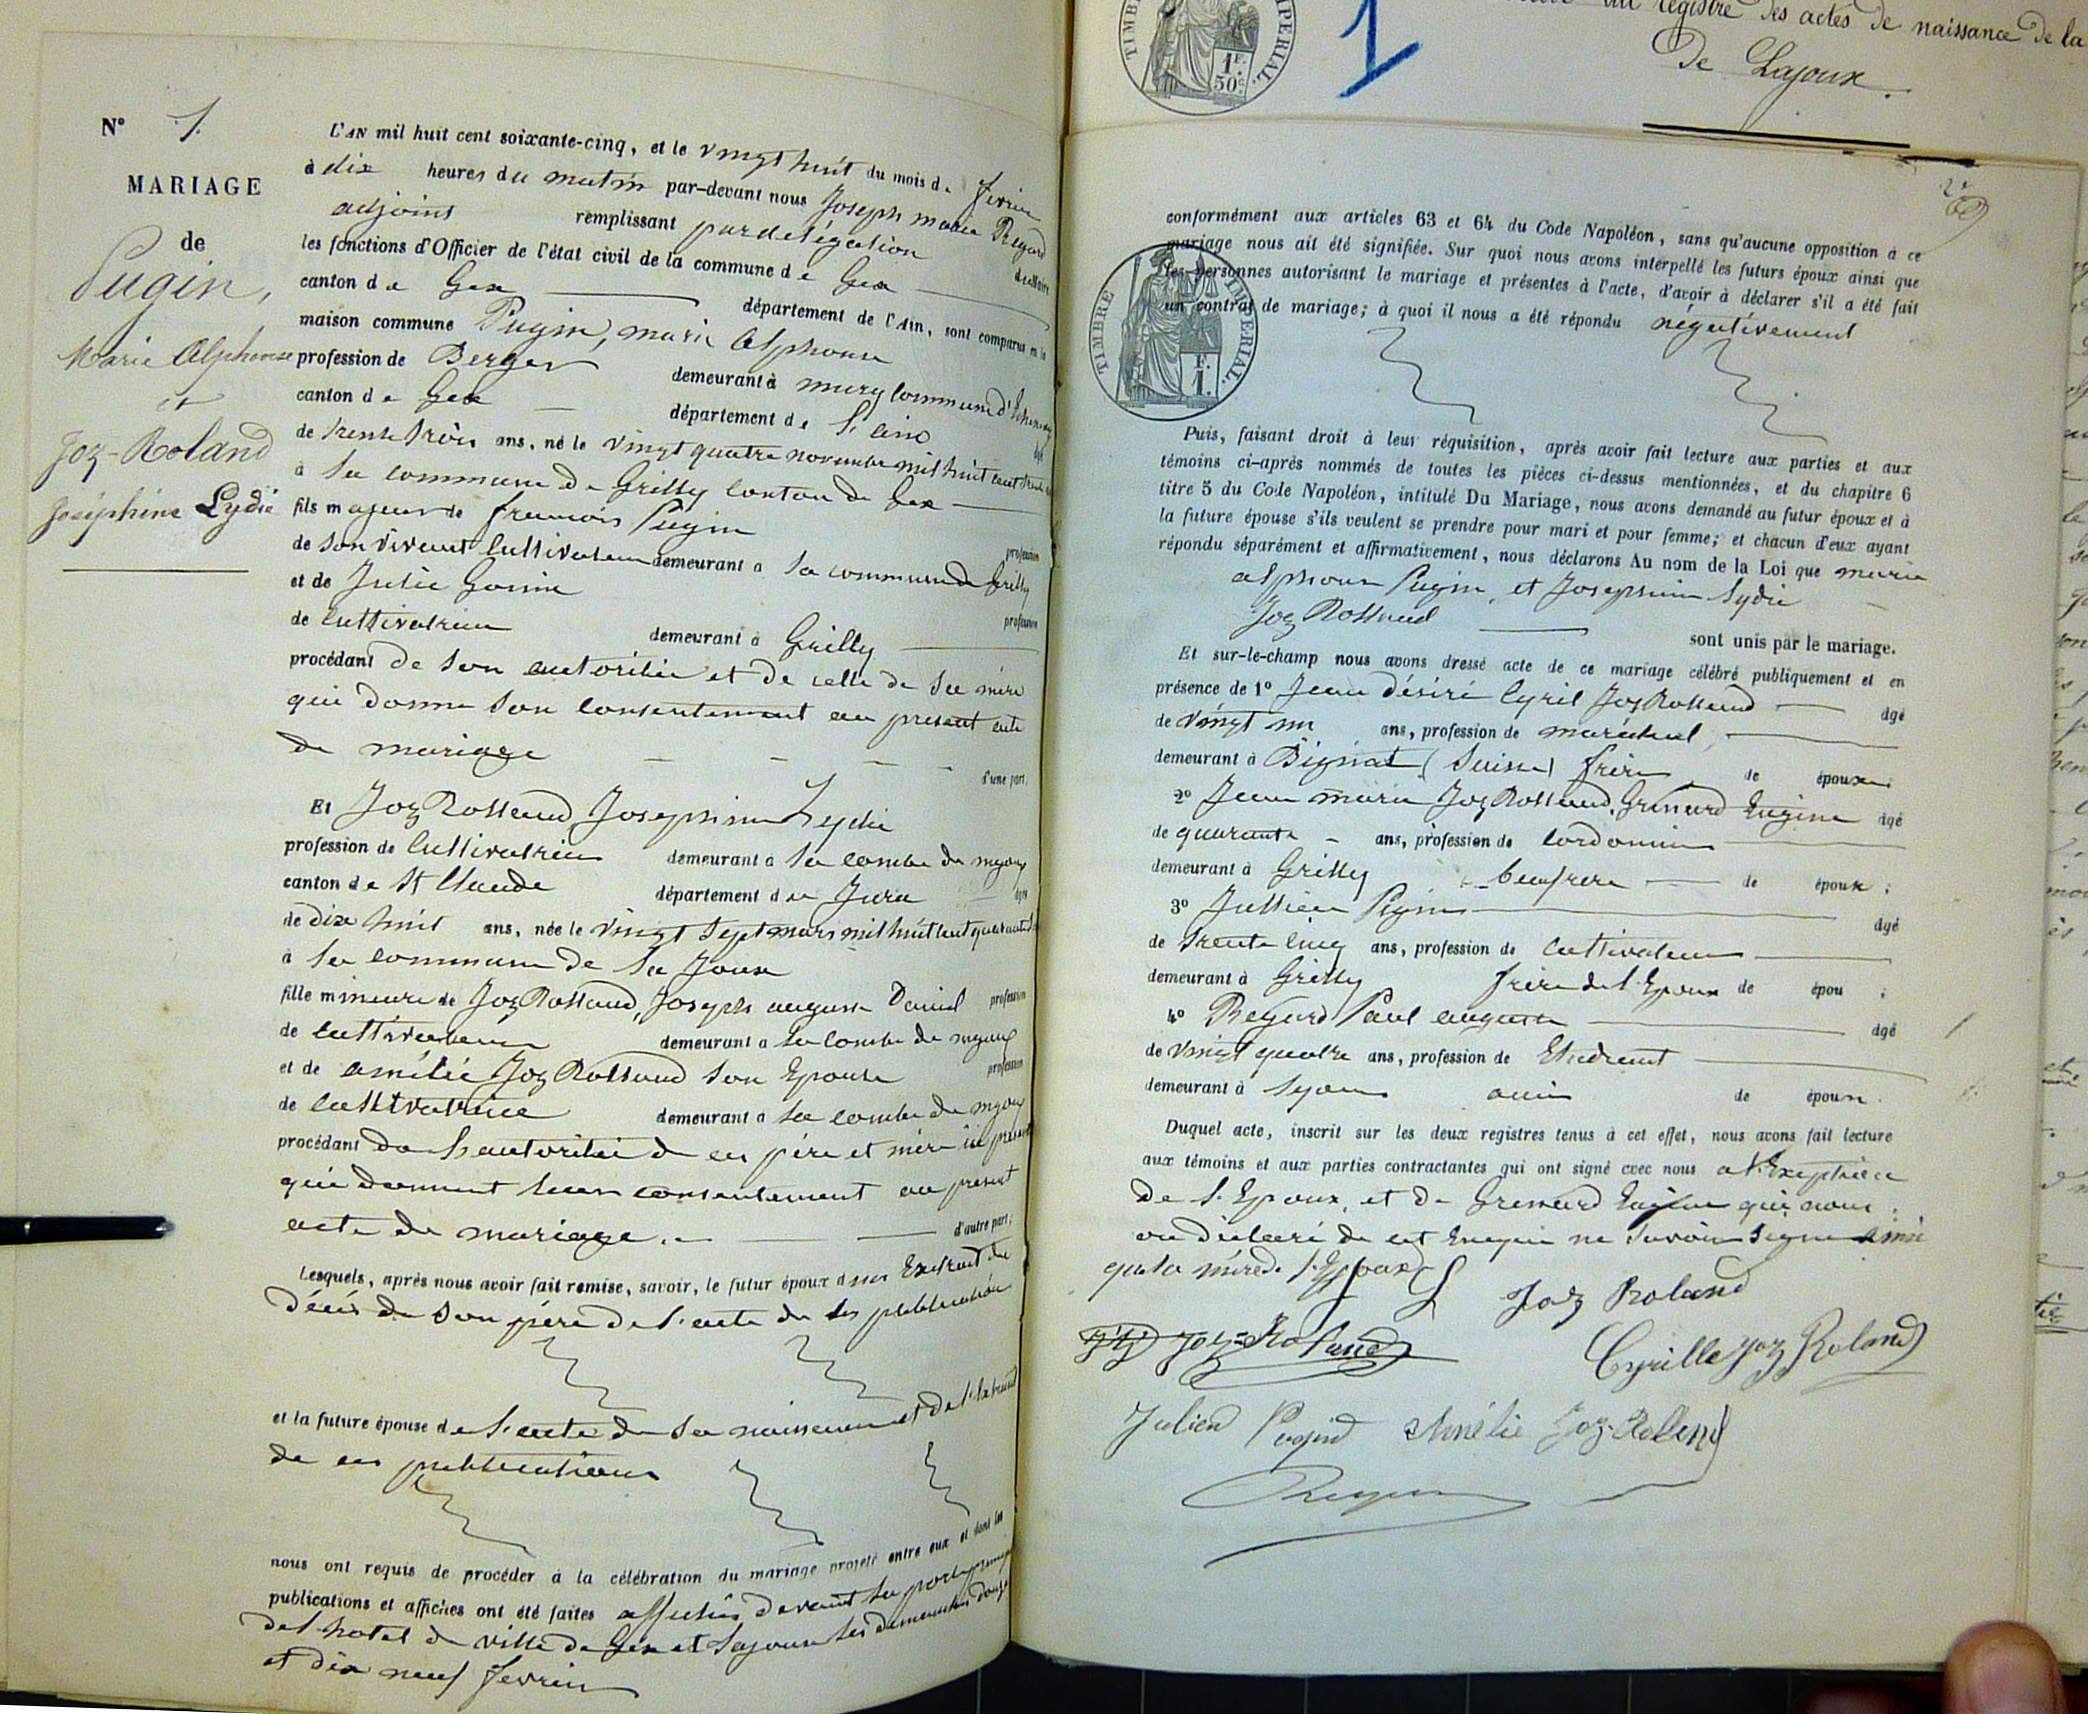 N° 1.
MARIAGE
de
Pugin,
Marie Alphonse
et
Joz-Roland
Joséphine Lydie
L'AN mil huit cent soixante-cinq, et le vingt huit du mois de fevrier
à dix heures du matin par-devant nous Joseph marie Regard
adjoint remplissant par délégation
les fonctions d'Officier de l'état civil de la commune de Gex
canton de Gex département de l'Ain, sont comparus en la
maison commune Pugin, marie Alphonse
profession de Berger demeurant à mury commune d'
canton de Gex département de l'ain
de trente trois ans, né le vingt quatre novembre mil huit cent
à la commune de Grilly Conton de Gex
fils majeur de francois Pugin profession
de son vivant Cultivateur demeurant à la commune de Grilly
et de Julie profession
de Cultivatrice demeurant à Grilly
procédant de son autoritée et de celle de sa mère
qui donne son Consentement au present acte
de mariage d'une part.
Et Joz Rolland Josephine Lydie
profession de Cultivatrice demeurant à la combe de mijoux
canton de St Claude département du Jura âgée
de Dix huit ans, née le Vingt Sept mars mil huit cent quarante
à la commune de La Joux
fille mineure de Joz Rolland, Joseph auguste Daniel profession
de Cultivateur demeurant à la Combe de mijoux
et de amélie Joz Rolland son Epouse profession
de Cultivatrice demeurant à la combe de mijoux
procédant de l'autoritée de ces père et mère ici present
qui donnent leur consentement au present
acte de mariage. d'autre part;
Lesquels, après nous avoir fait remise, savoir, le futur époux d'un Extrait du
décès de son père de l'acte de les publication
et la future épouse de l'acte de sa naissance et de l'extrait
de ces publications
nous ont requis de procéder à la célébration du mariage projeté entre eux et dont les
publications et affiches ont été faites affichés devant la porte principale
de l'hotel de ville de Gex et Lajoux les dimanches douze
et dix neuf fevrier
TIMBRE IMPERIAL.
1 F. 50 c.
1
registre des actes de naissance de la
De Lajoux.
conformément aux articles 63 et 64 du Code Napoléon, sans qu'aucune opposition à ce
mariage nous ait été signifiée. Sur quoi nous avons interpellé les futurs époux ainsi que
les personnes autorisant le mariage et présentes à l'acte, d'avoir à déclarer s'il a été fait
un contrat de mariage; à quoi il nous a été répondu négativement
TIMBRE IMPERIAL.
F. 1.
Puis, faisant droit à leur réquisition, après avoir fait lecture aux parties et aux
témoins ci-après nommés de toutes les pièces ci-dessus mentionnées, et du chapitre 6
titre 5 du Code Napoléon, intitulé Du Mariage, nous avons demandé au futur époux et à
la future épouse s'ils veulent se prendre pour mari et pour femme; et chacun d'eux ayant
répondu séparément et affirmativement, nous déclarons Au nom de la Loi que marie
alphonse Pugin, et Josephine Lydie
Joz Rolland sont unis par le mariage.
Et sur-le-champ nous avons dressé acte de ce mariage célébré publiquement et en
présence de 1° Jean désiré Cyril Joz Rolland âgé
de vingt un ans, profession de maréchal
demeurant à (Suisse) frère de épouse
2° Jean marie Joz Rolland, Grenard Eugène âgé
de quarante ans, profession de Cordonnier
demeurant à Grilly beaufrère de époux;
3° Jullien Pugin âgé
de trente Cinq ans, profession de Cultivateur
demeurant à Grilly frère de l'Epoux de épou ;
4° Regard Paul auguste âgé
de vingt quatre ans, profession de Etudiant
demeurant à Lyon ami de époux.
Duquel acte, inscrit sur les deux registres tenus à cet effet, nous avons fait lecture
aux témoins et aux parties contractantes qui ont signé avec nous a l'Exeption
de l'Epoux, et de Grenard Eugène qui nous
on déclaré de cet Enquis ne savoir signé ainsi
que la mère de l'Epoux
Joz Roland
Joz-Roland
Cyrille Joz Roland
Julien Pugin Amélie Joz-Roland
Regard